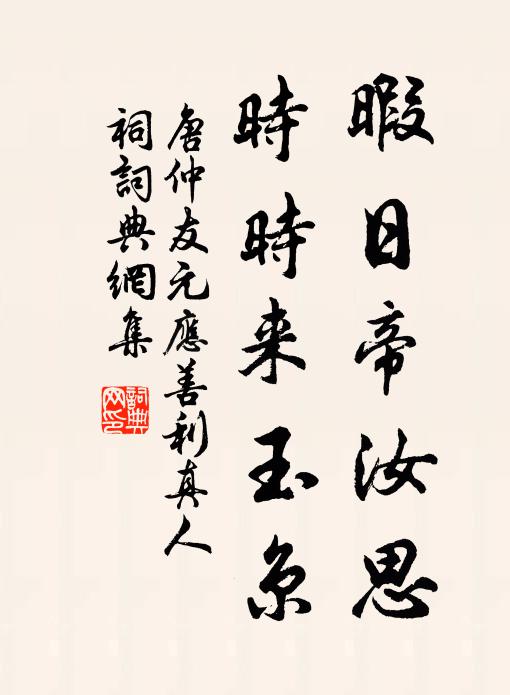 暇日帝汝思
時時来玉京
唐仲友元應善利真人
祠詞典網集
詞典网印